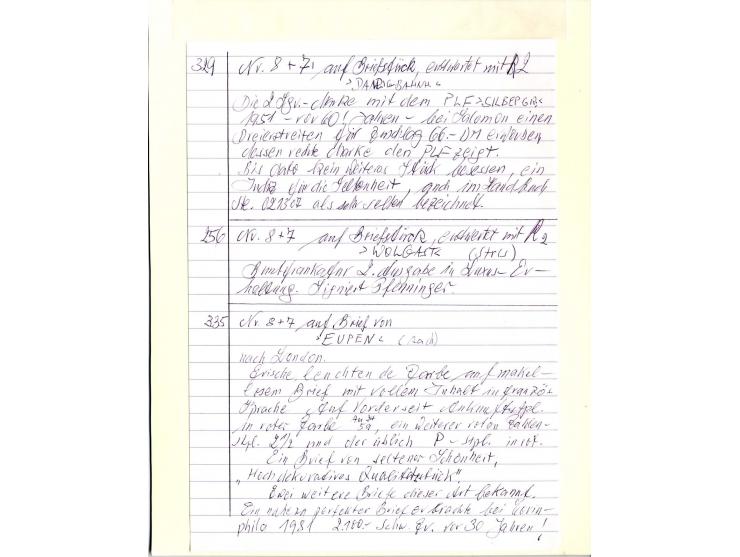 319 Nr. 8 + 7, auf Briefstück, entwertet mit R2
"DANZIG BAHNH."
Die 2 Sgr.-Marke mit dem PLF "SILBERGR."
1951 - vor 60! Jahren - bei Salomon einen
Dreierstreifen für Umschlag 66.- DM
dessen rechte Marke den PLF zeigt.
Bis dato kein weiteres Stück besessen, ein
Indiz für die Seltenheit, auch im Handbuch
als sehr selten bezeichnet
256 Nr. 8 + 7 auf Briefstück, entwertet mit R2
"WOLGAST" (Strls)
Buntfrankatur 2. Ausgabe in Luxus-Er-
haltung. Signiert Pfenninger.
335 Nr. 8 + 7 auf Brief von
"EUPEN"
nach London.
Frische leuchtende Farbe auf makel-
losem Brief mit vollem Inhalt in französ.
Sprache. Auf Vorderseite Ankunftstpl.
in roter Farbe, ein weiterer roter Zahlen-
stpl. 2 1/2 und der üblich P - stpl. in rot.
Ein Brief von seltener Schönheit,
"Hochdekoratives Qualitätsstück".
Zwei weitere Briefe dieser Art bekannt.
Ein nahezu perfekter Brief erbrachte bei Corin-
phila 1981 2.100.- Schw. Fr. vor 30 Jahren!